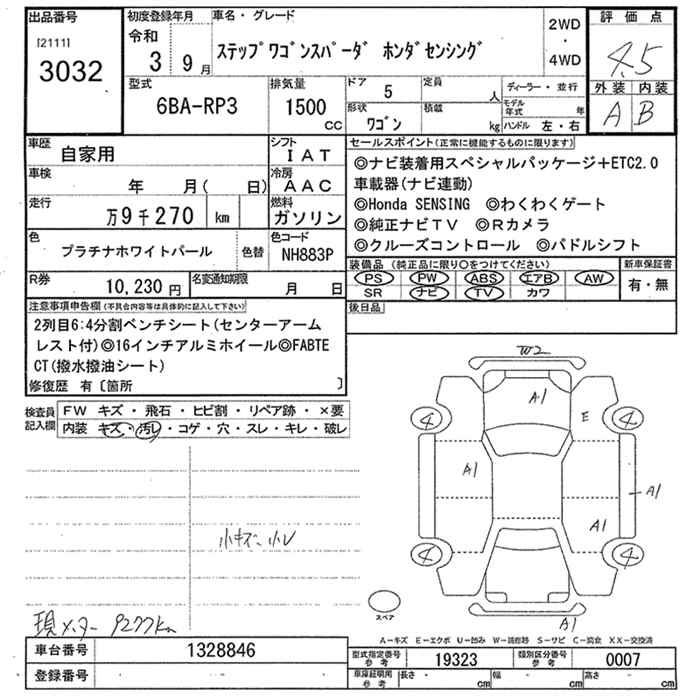 出品番号 初度登録年月 車名・グレード 評価点
[2111] 令和 2WD
3032 3 年 9 月 ステップワゴンスパーダ ホンダセンシング ・ 4.5
4WD
型式 排気量 ドア 5 定員 人 ディーラー・並行 外装 内装
6BA-RP3 1500 cc 形状 ワゴン 積載 kg モデル年式 年 A B
ハンドル 左・右
車歴 自家用 シフト IAT セールスポイント(正常に機能するものに限ります)
車検 年 月( 日) 冷房 AAC ◎ナビ装着用スペシャルパッケージ+ETC2.0
車載器(ナビ連動)
走行 万9千270 km 燃料 ガソリン ◎Honda SENSING ◎わくわくゲート
◎純正ナビTV ◎Rカメラ
色 プラチナホワイトパール 色替 色コード NH883P ◎クルーズコントロール ◎パドルシフト
R券 10,230円 名変通知期限 月 日 装備品(純正品に限り○をつけてください) 新車保証書
PS PW ABS エアB AW 有・無
SR ナビ TV カワ
注意事項申告欄(不具合内容等は具体的に記入して下さい) 後日品
2列目6:4分割ベンチシート(センターアーム
レスト付)◎16インチアルミホイール◎FABTE
CT(撥水撥油シート)
修復歴 有〔箇所 〕
検査員記入欄 FW キズ・飛石・ヒビ割・リペア跡・×要
内装 キズ・汚レ・コゲ・穴・スレ・キレ・破レ
W2
A1
4 E 4
A1
A1
A1
4 4
小キズ、小レ
スペア
A1
現メーター 9277km
A-キズ E-エクボ U-凹み W-補修跡 S-サビ C-腐食 XX-交換済
車台番号 1328846 型式指定番号 参考 19323 類別区分番号 参考 0007
登録番号 車庫証明用 参考 長さ cm 幅 cm 高さ cm